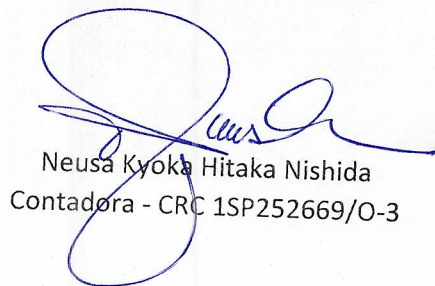 Neusa Kyoka Hitaka Nishida
Contadora - CRC 1SP252669/O-3